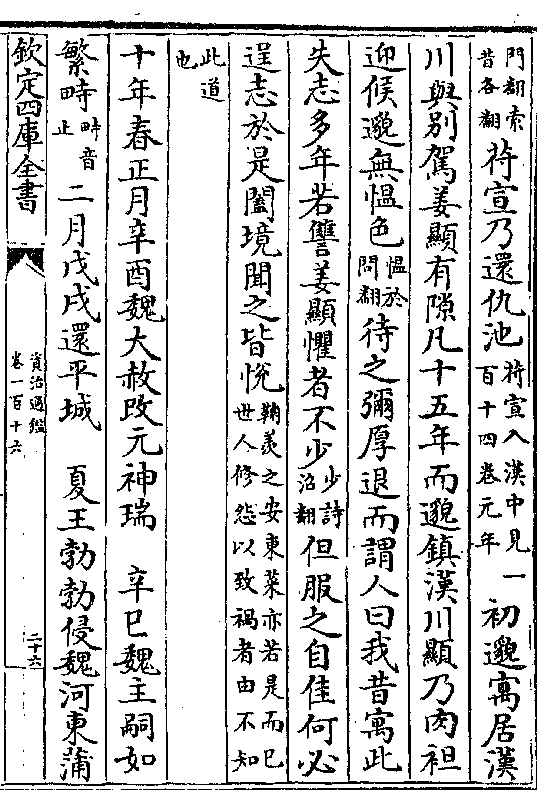 門翻索
昔各翻
苻宣乃還仇池
苻宣入漢中見一
百十四卷元年
初邈寓居漢
川與别駕姜顯有隙凡十五年而邈鎮漢川顯乃肉袒
迎候邈無愠色
愠於
問翻
待之彌厚退而謂人曰我昔寓此
失志多年若讐姜顯懼者不少
少詩
沼翻
但服之自佳何必
逞志於是闔境聞之皆恱
鞠羨之安東萊亦若是而已
世人修怨以致禍者由不知
此道
也
十年春正月辛酉魏大赦改元神瑞 辛巳魏主嗣如
繁畤
畤音
止
二月戊戌還平城 夏王勃勃侵魏河東蒲
欽定四庫全書
資治通鑑
卷一百十六
二十六